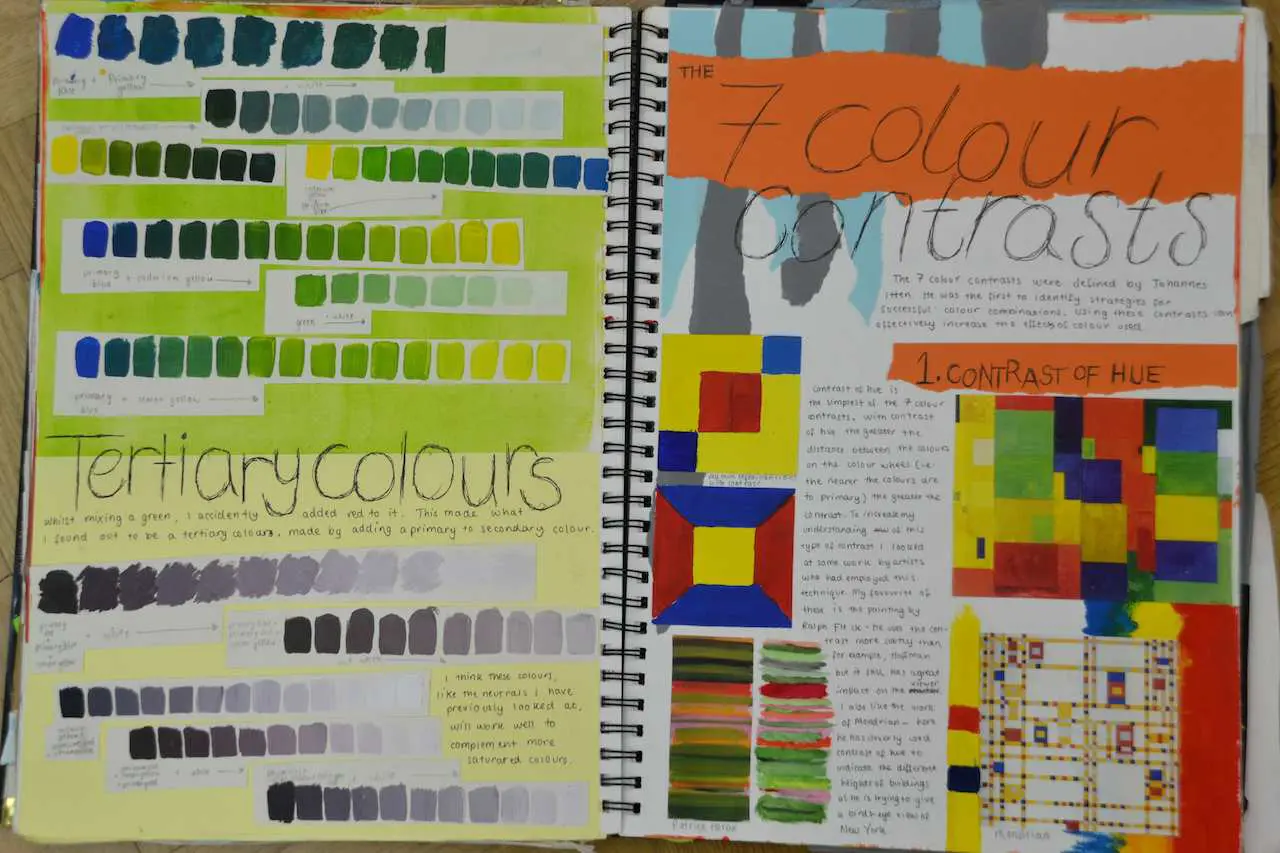 Primary + Primary
blue yellow
+ white
primary + cadmium yellow
blue
green + white
primary + lemon yellow
blue
Tertiary colours
Whilst mixing a green, I accidently added red to it. This made what
I found out to be a tertiary colours, made by adding a primary to secondary colour.
+ white
I think these colours,
like the neutrals I have
previously looked at,
will work well to
complement more
saturated colours.
THE
7 colour
contrasts
The 7 colour contrasts were defined by Johannes
Itten. He was the first to identify strategies for
successful colour combinations. Using these contrasts can
effectively increase the effects of colour used.
1. CONTRAST OF HUE
Contrast of hue is
the simplest of the 7 colour
contrasts. With contrast
of hue the greater the
distance between the colours
on the colour wheel (i.e.
the nearer the colours are
to primary) the greater the
contrast. To increase my
understanding of this
type of contrast I looked
at some work by artists
who had employed this
technique. My favourite of
these is the painting by
Ralph - he uses the con-
trast more subtly than
for example, Hoffman
but it still has a great
impact on the viewer
I also like the work
of Mondrian - here
he has cleverly used
contrast of hue to
indicate the different
heights of buildings
as he is trying to give
a birds-eye view of
New York.
Patrick Heron
Mondrian